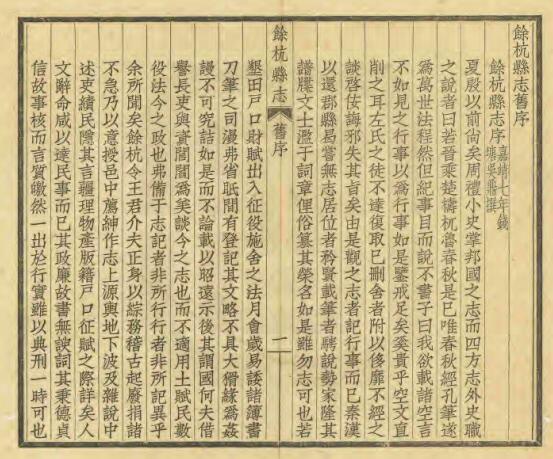 餘杭縣志舊序
餘杭縣志序嘉靖七年錢塘吳鼎撰
夏殷以前尙矣周禮小史掌邦國之志而四方志外史職
之說者曰若晉乘楚檮杌魯春秋是已唯春秋經孔筆遂
爲萬世法程然但紀事目而說不書子曰我欲載諸空言
不如見之行事以爲行事如是鑒戒足矣奚貴乎空文直
削之耳左氏之徒不達復取已刪舍者附以侈靡不經之
談啓佞誨邪失其旨矣由是觀之志者記行事而已秦漢
以還郡縣曷嘗無志居位者矜賢載筆者騁說勢家隆其
譜牒文士濫于詞章俚俗纂其榮名如是雖勿志可也若
餘杭縣志
舊序
一
墾田戸口財賦出入征役施舍之法月會歲易諉諸簿書
刀筆之司漫弗省眡間有登記其文略不具大猾緣爲姦
謾不可究詰如是而不論載以昭遠示後其謂國何夫借
譽長吏與賁閭閻爲矣談今之志也而不適用土賦民數
役法今之政也弗備于志記者非所行行者非所記異乎
余所聞矣餘杭令王君介夫正身以綜務稽古起廢捐諸
不急乃以意授邑中薦紳作志上源輿地下波及雜說中
述吏績民隱其言疆理物產版籍戸口征賦之際詳矣人
文辭命咸以達民事而已其政廉故書無諛詞其秉德貞
信故事核而言質皦然一出於行實雖以典刑一時可也